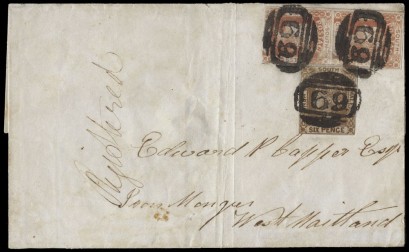 69
69
SOUTH
69
SIX PENCE
Registered
Edward P Capper Esqr
Iron Monger
West Maitland